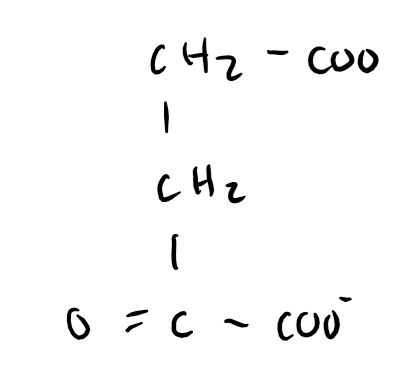 CH₂ - COO
|
CH₂
|
O = C - COO⁻